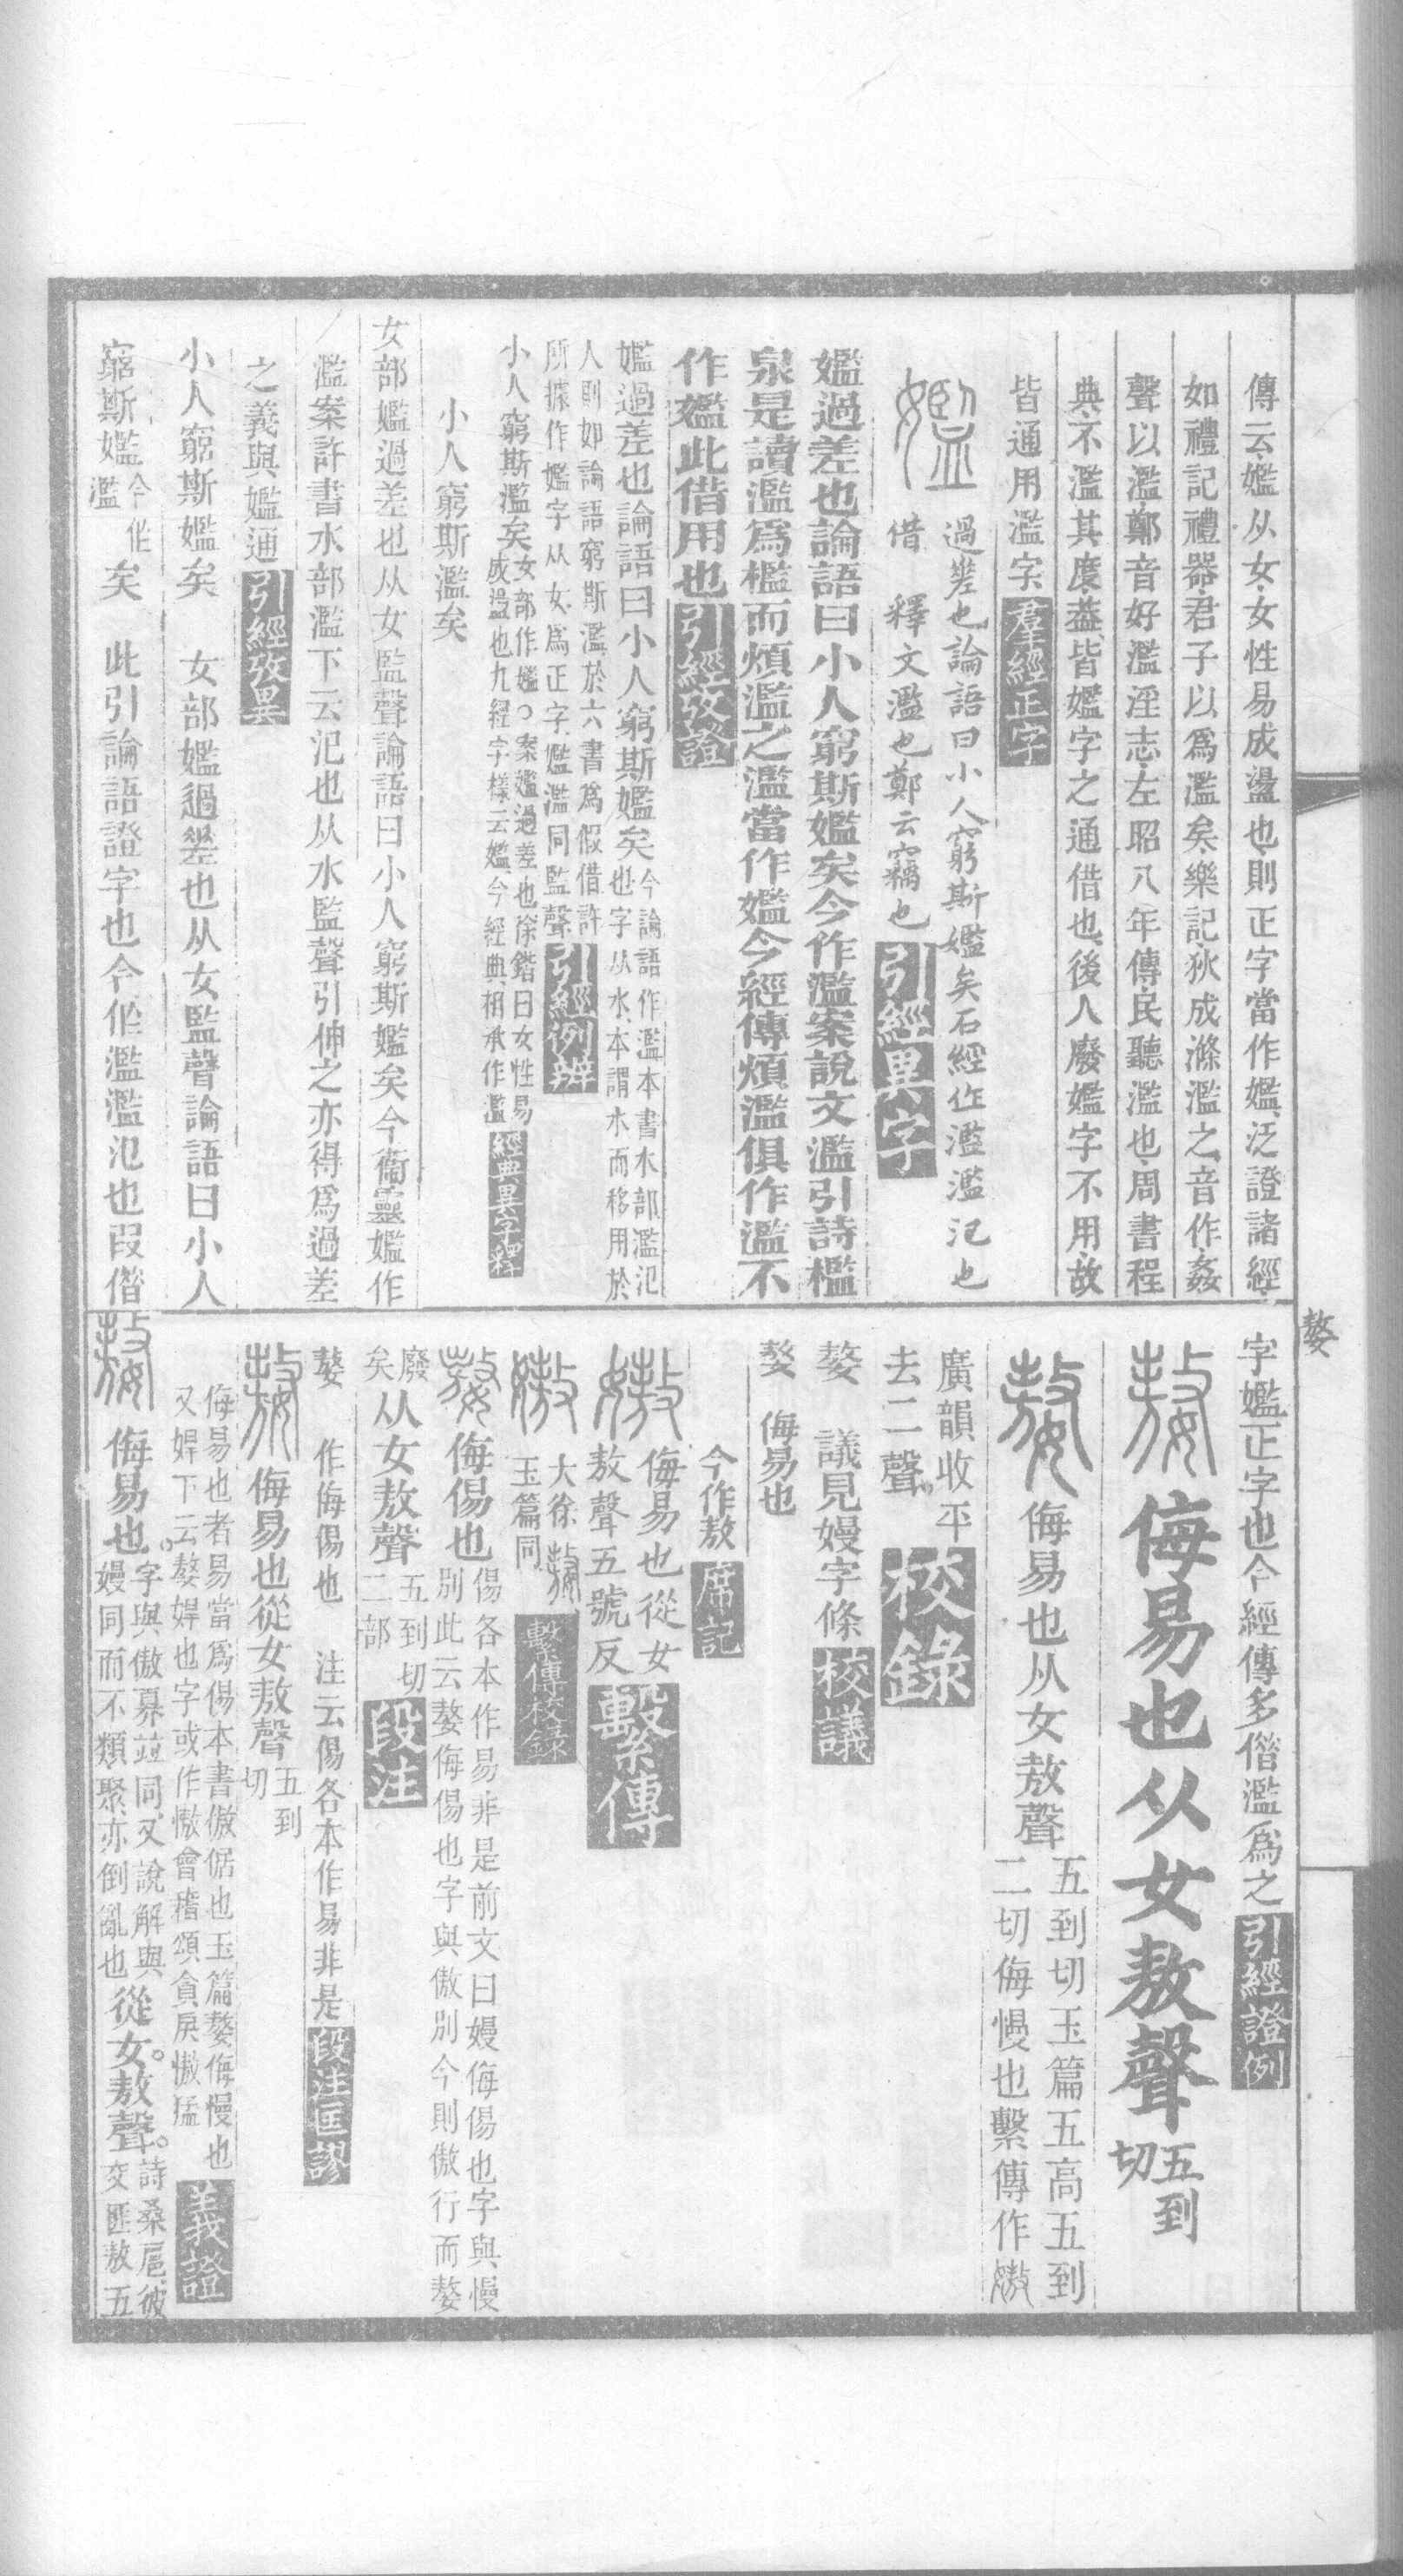 傳云㜮从女、女性易成盪也、則正字當作㜮、泛證諸經、
如禮記禮器、君子以爲濫矣、樂記、狄成滌濫之、音作、姦
聲以濫、鄭音好濫淫志、左昭八年傳、民聽濫也、周書程
典、不濫其度、葢皆㜮字之通借也、後人廢㜮字不用、故
皆通用濫字、羣經正字
㜮 過差也論語曰小人窮斯㜮矣石經作濫濫氾也
借 釋文濫也鄭云竊也 引經異字
㜮過差也論語曰小人窮斯㜮矣今作濫案說文濫引詩檻
泉是讀濫爲檻而煩濫之濫當作㜮今經傳煩濫俱作濫不
作㜮此借用也引經攷證
㜮過差也論語曰小人窮斯㜮矣今論語作濫本書水部濫氾
也字从水、本謂水而移用於
人則如論語窮斯濫、於六書爲假借許
所據作㜮字从女、爲正字、㜮濫同監聲、引經例辨
小人窮斯濫矣女部作㜮○案㜮過差也徐鍇曰女性易
成盪也九經字樣云㜮、今經典相承作濫經典異字釋
小人窮斯濫矣
女部㜮過差也从女監聲論語曰小人窮斯㜮矣今衞靈㜮作
濫案許書水部濫下云氾也从水監聲引伸之亦得爲過差
之義與㜮通引經攷異
小人窮斯㜮矣 女部㜮過差也从女監聲論語曰小人
窮斯㜮今作濫矣 此引論語證字也今作濫濫氾也叚借
字㜮正字也今經傳多偕濫爲之引經證例
嫯 侮易也从女敖聲五到切
嫯 侮易也从女敖聲五到切玉篇五高五到
二切侮慢也繫傳作嫯
廣韻收平
去二聲。校錄
嫯 議見嫚字條校議
嫯 侮易也
今作敖席記
嫯 侮易也從女
敖聲五號反繫傳
嫯 大徐嫯
玉篇同繫傳校錄
嫯 侮傷也傷各本作易非是前文曰嫚侮傷也字與慢
別此云嫯侮傷也字與傲別今則傲行而嫯
廢
矣从女敖聲五到切
二部段注
嫯 作侮傷也 注云傷各本作易非是段注匡謬
嫯 侮易也從女敖聲五到切
侮易也者易當爲傷本書傲倨也玉篇嫯侮慢也
又娨下云嫯娨也字或作憿會稽頌貪戾憿猛 義證
嫯 侮易也。字與傲奡竝同、又說解與
嫚同而不類聚、亦倒亂也從女。敖聲。詩桑扈、彼
交匪敖、五
嫯